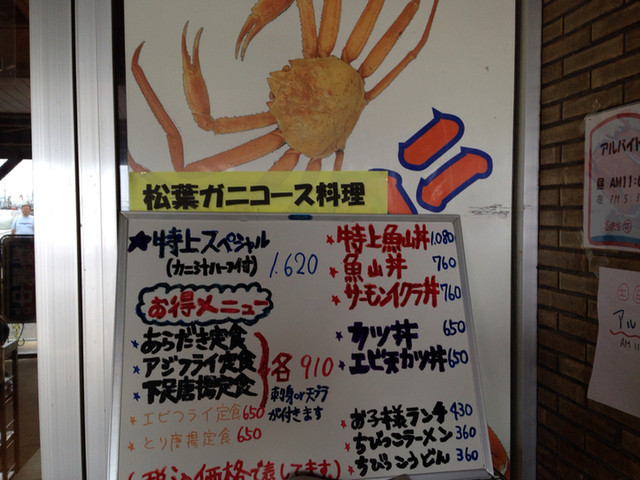 松葉ガニコース料理
ニ
★特上スペシャル
(カニ汁ハーフ付) 1.620
お得メニュー
あらだき定食
★アジフライ定食
下足唐揚定食
各 910
刺身or天プラ
が付きます
★エビフライ定食 650
★とり唐揚定食 650
(税込価格で表してます)
★特上魚山丼 1.080
★魚山丼 760
★サーモンイクラ丼 760
★カツ丼 650
★エビ天カツ丼 650
★お子様ランチ 430
★ちびっこラーメン 360
★ちびっこうどん 360
アルバイト
昼 AM11:
アル
AM.11